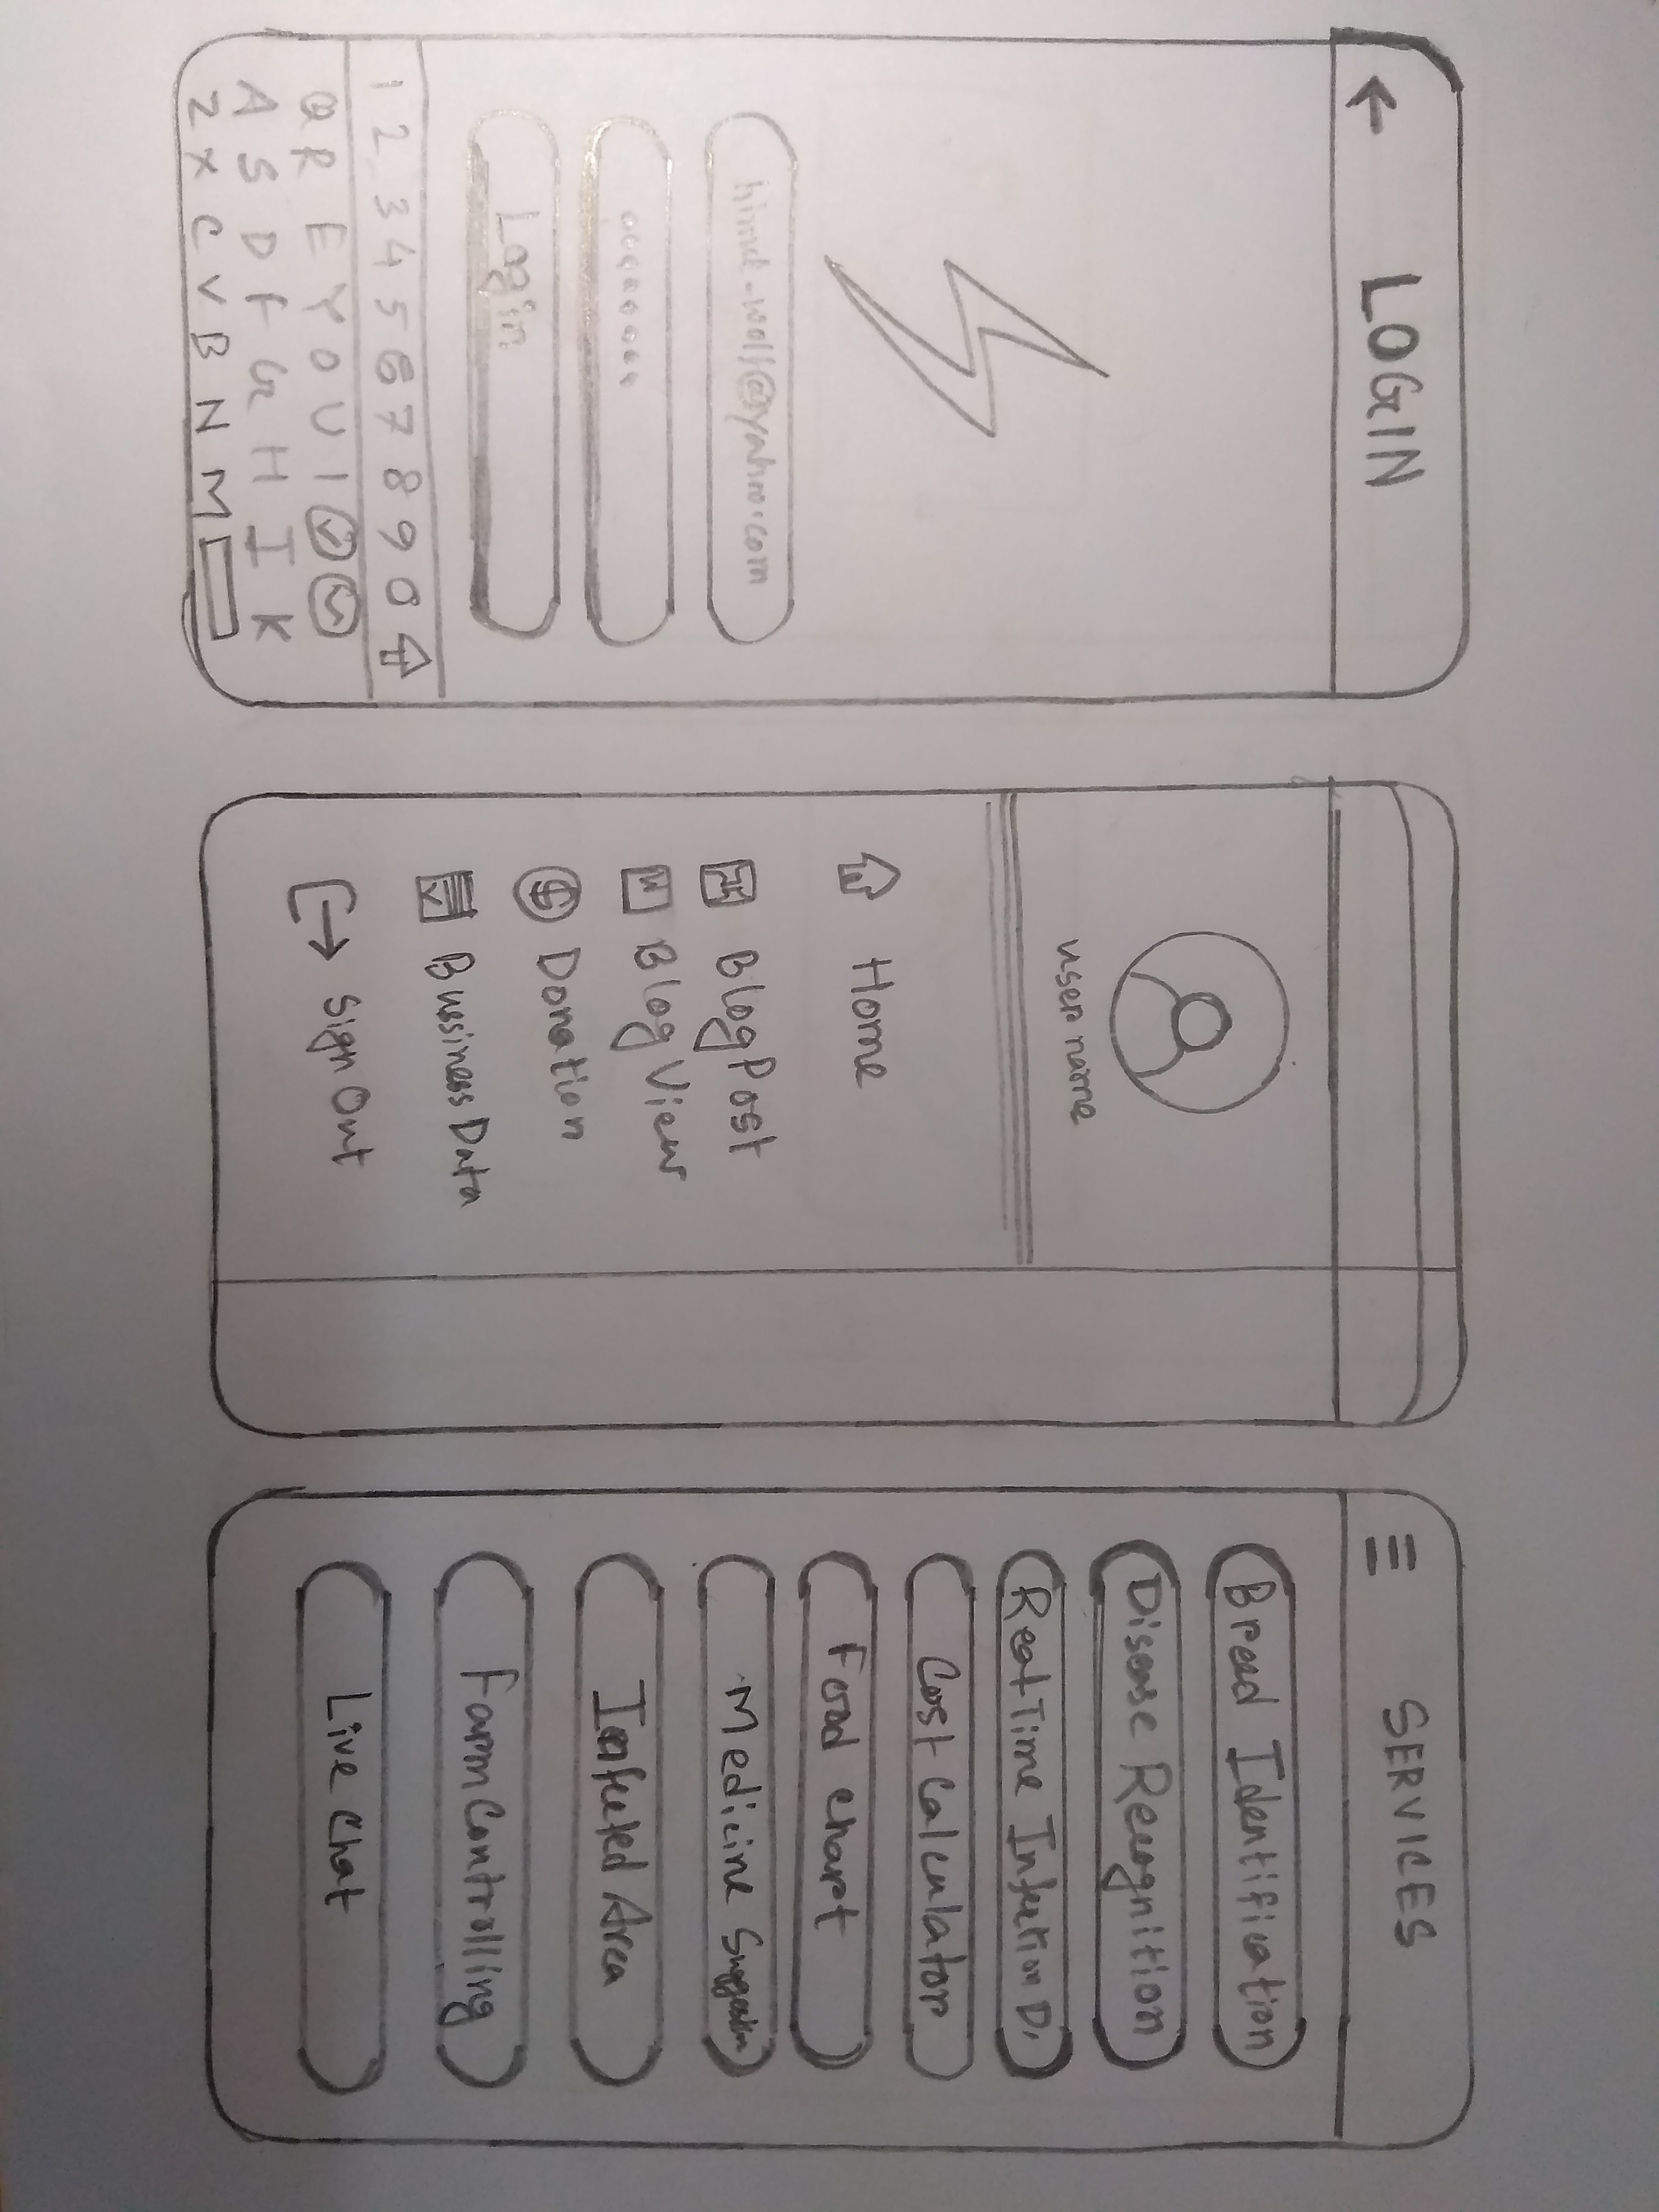 LOGIN
himel-wolf@yahoo.com
Login
1 2 3 4 5 6 7 8 9 0
Q R E Y O U I
A S D F G H I K
Z X C V B N M
user name
Home
BlogPost
Blog View
Donation
Bussiness Data
Sign Out
SERVICES
Breed Identification
Disease Recognition
Real Time Infection D.
Cost Calculator
Food chart
Medicine Suggestion
Infected Area
Farm Controlling
Live chat